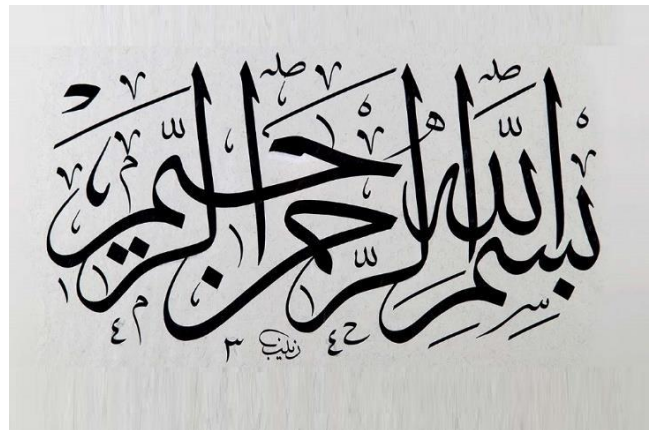 بسم الله الرحمن الرحيم
زينب